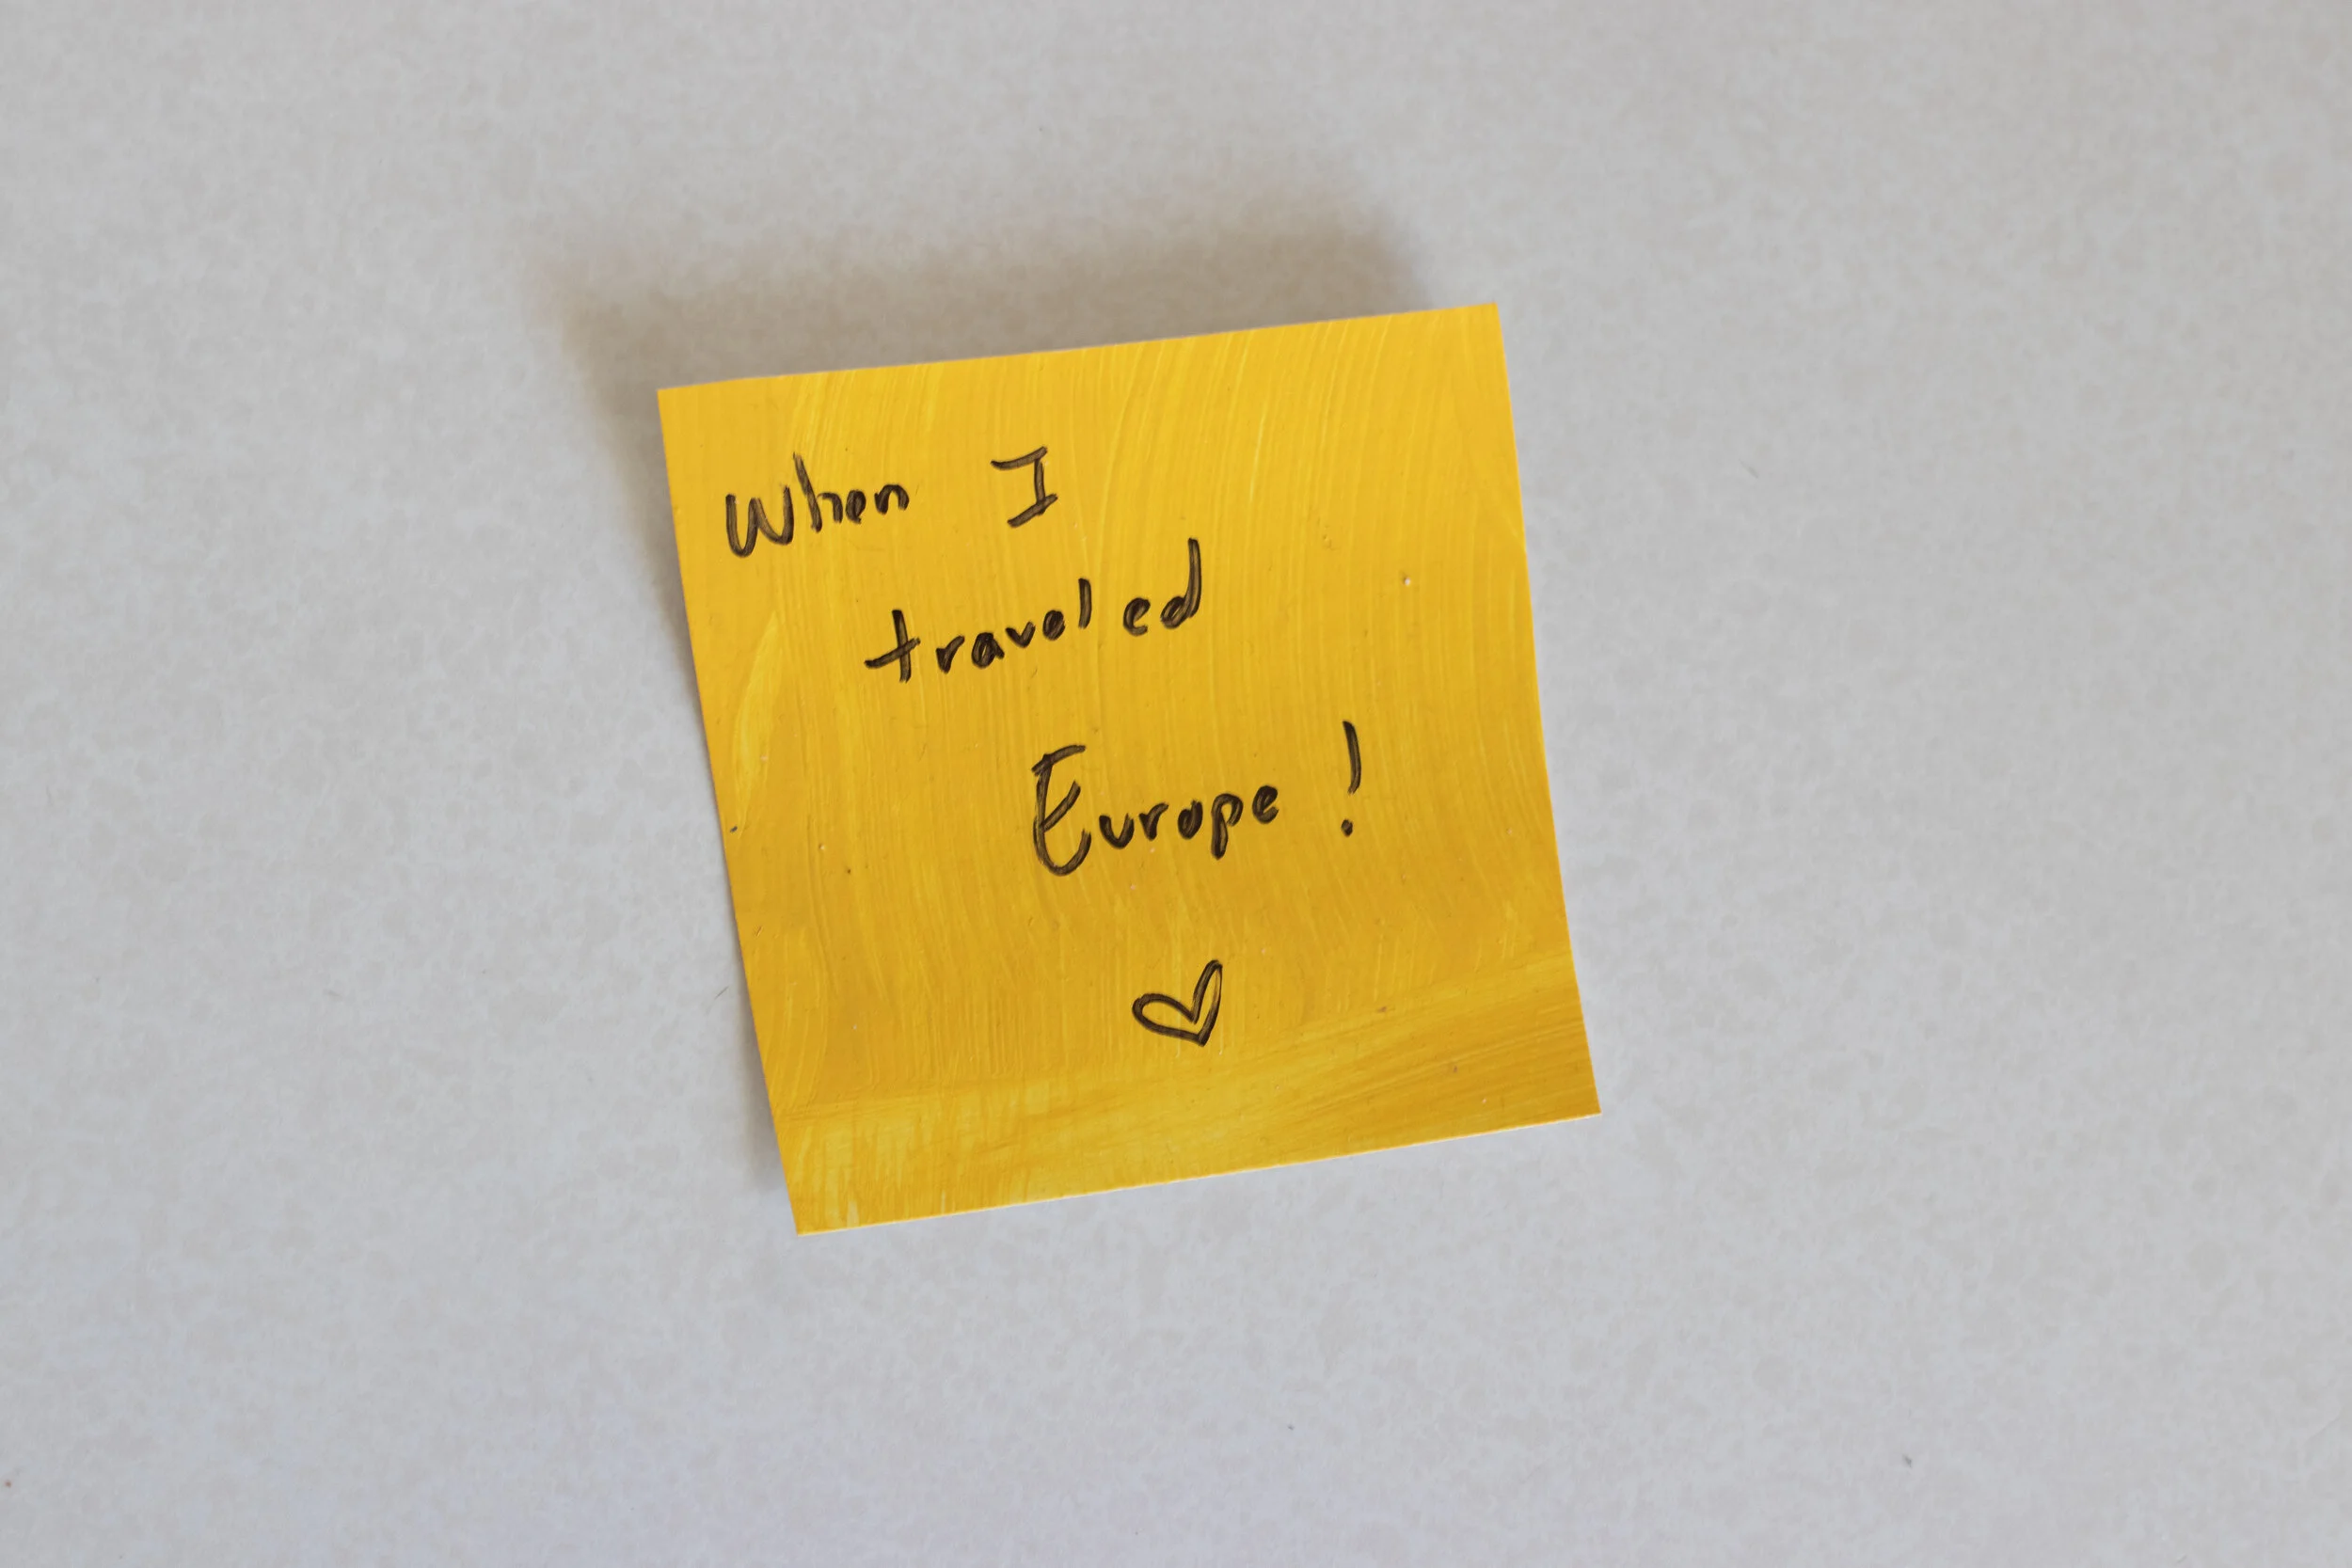 When I
traveled
Europe!
♡